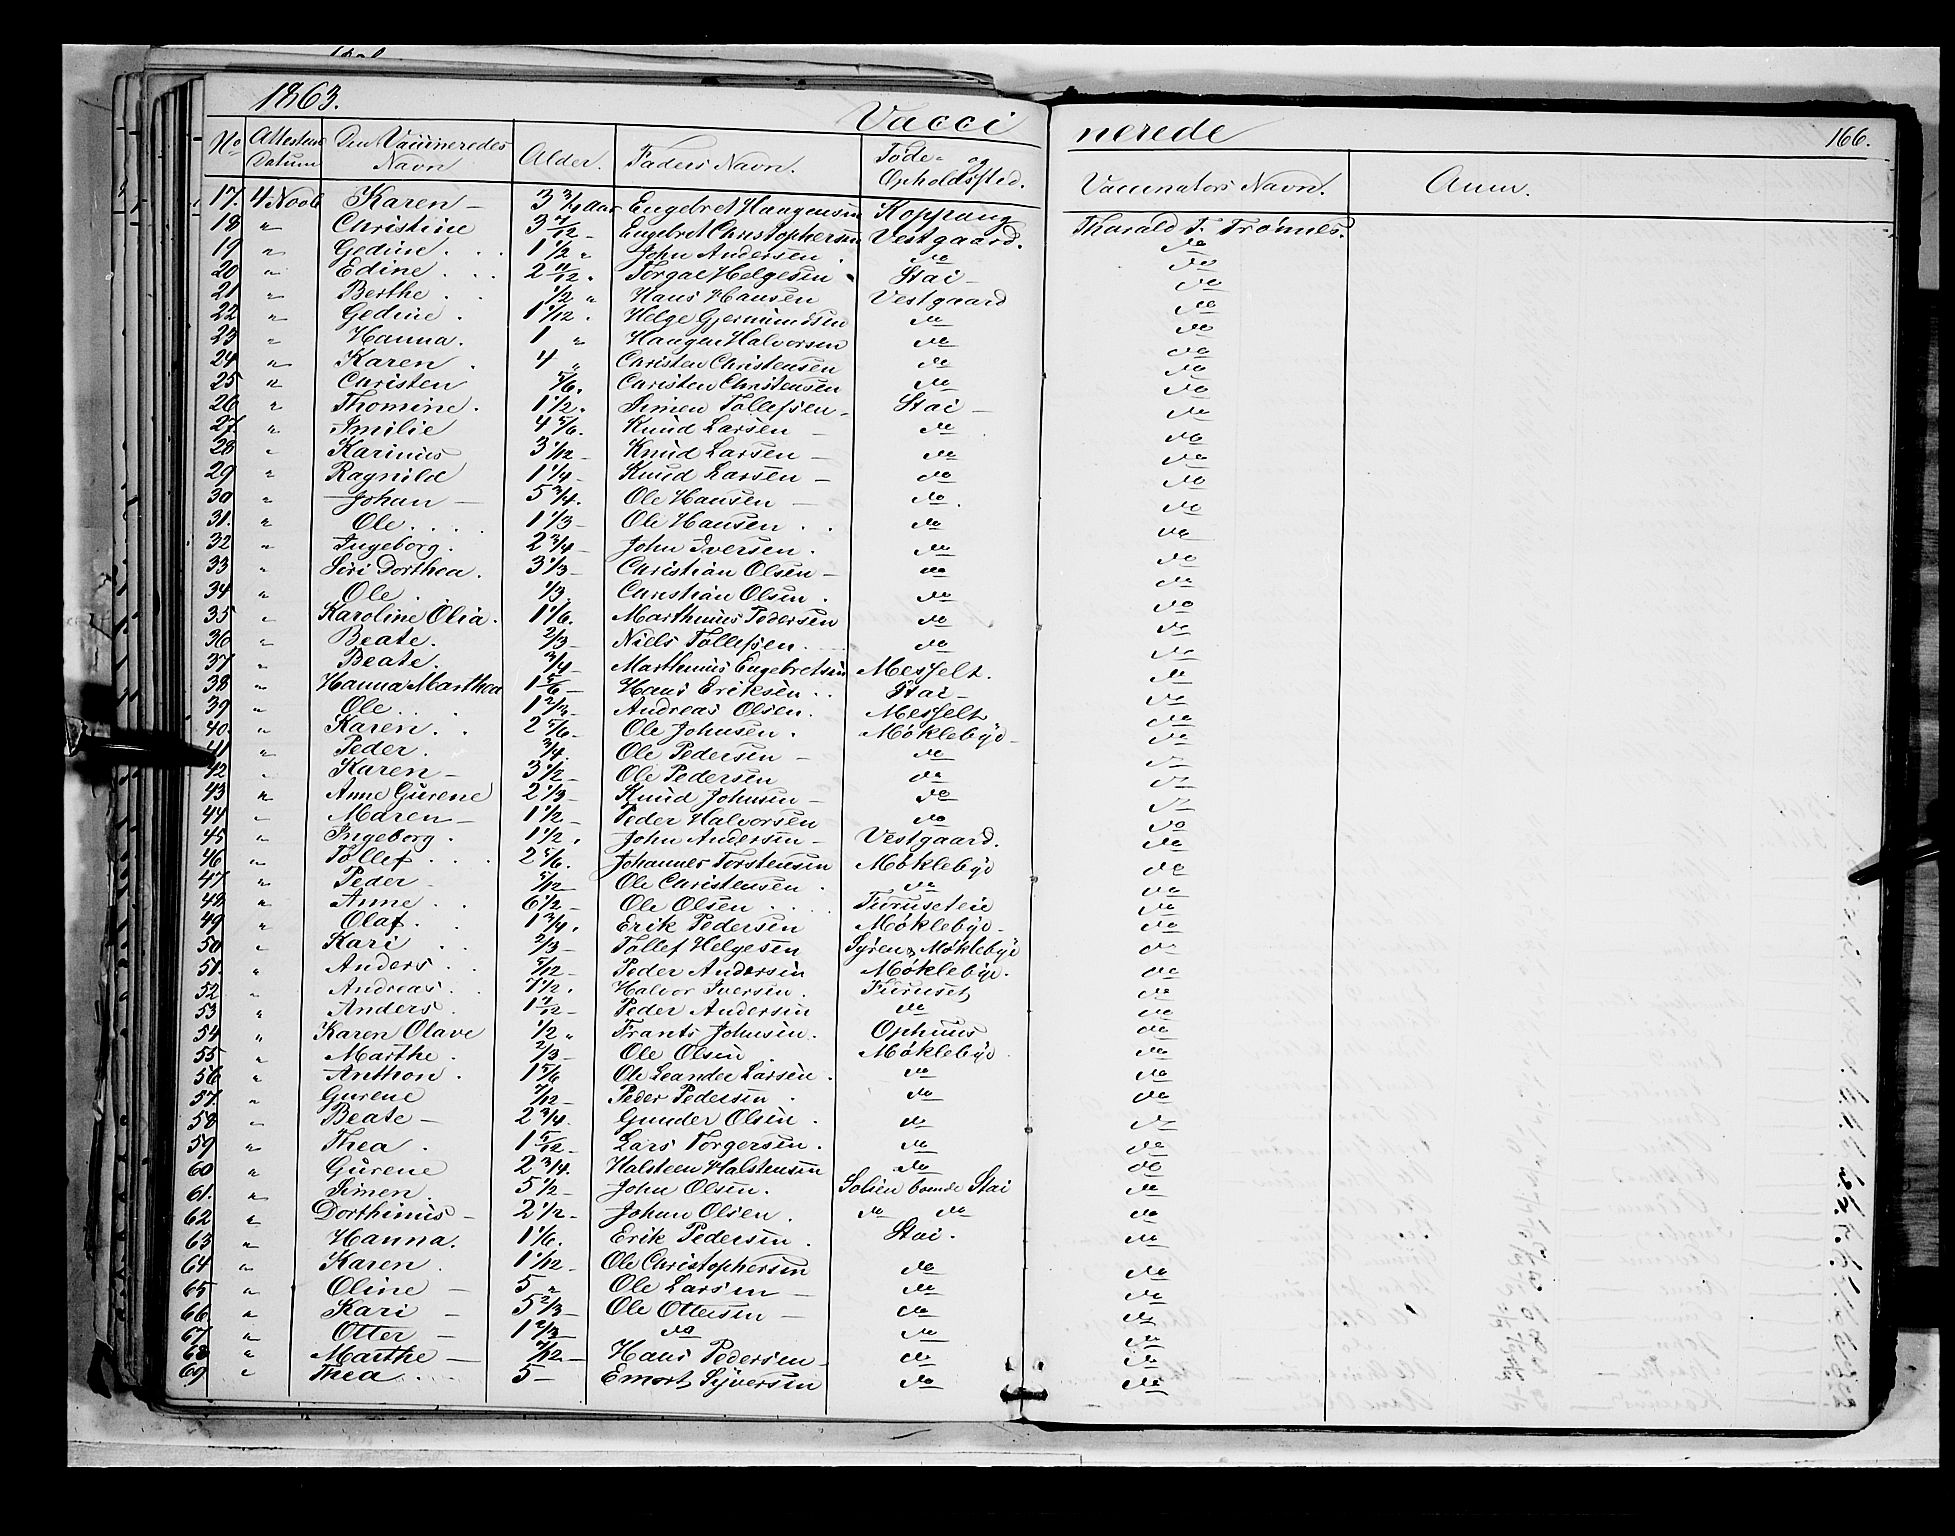 1863.
Vaccinerede
166.
No Attestens Datum Den Vaccineredes Navn Alder. Faders Navn. Føde- og Opholdssted. Vaccinators Navn. Anm.
17. 4 Novb Karen - 3 3/4 Aar Engebret Haagensen Koppang Tharald T. Trønnes.
18 " Christine 3 7/12 - Engebret Christophersen Vestgaard. do
19 " Gedine . . . 1 1/2 " John Andersen . do do
20 " Edine . . . 2 11/12 " Torgal Helgesen Stai - do
21 " Berthe . . 1/2 " Hans Hansen Vestgaard do
22 " Gedine . 1 1/12 . Helge Gjermundsen do do
23 " Hanna. 1 " Haagen Halvorsen do do
24 " Karen . 4 " Christen Christensen do do
25 " Christen 5/6. Christen Christensen do do
26 " Thomine . 1 1/2. Simen Tollefsen - Stai - do
27 " Imilie 4 5/6. Knud Larsen - do do
28 " Karinus 3 1/12 - Knud Larsen - do do
29 " Ragnild 1 1/4 - Knud Larsen - do do
30 " Johan - 5 3/4. Ole Hansen - do do
31. " Ole . . . . 1 1/3 - Ole Hansen . . do do
32 " Ingeborg. 2 3/4 - John Iversen . do do
33 " Siri Dorthea . 3 1/3 - Christian Olsen - do do
34 " Ole . 1/3. Christian Olsen . do do
35 " Karoline Olia. 1 1/6. Marthinus Pedersen do do
36 " Beate. 2/3 - Niels Tollefsen. do do
37 " Beate. 3/4 - Marthinus Engebretsen Messelt. do
38 " Hanna Marthea 1 5/6 - Hans Eriksen . . Stai - do
39 " Ole . . . 1 2/3 - Andreas Olsen. Messelt do
40. " Karen . . 2 5/6 - Ole Johnsen . Møklebye - do
41 " Peder . 3/4. Ole Pedersen - do do
42 " Karen - 3 1/2 - Ole Pedersen do do
43 " Anne Gurene 2 1/3 - Knud Johnsen - do do
44 " Maren - 1 1/2 - Peder Halvorsen do do
45 " Ingeborg . 1 1/2 . John Andersen - Vestgaard. do
46 " Tollef . . . 2 5/6. Johannes Torstensen Møklebye do
47 " Peder 5/12 - Ole Christensen . do do
48 " Anne . . 6 1/2 - Ole Olsen . . . . Furuseteie do
49 " Olaf . . 1 3/4. Erik Pedersen Møklebye - do
50 " Kari . . 2/3 - Tollef Helgesen Møklebye do
51. " Anders . . 5/12 - Peder Andersen Møklebye. do
52 " Andreas . . 7 1/2 . Halvor Iversen . Furuset do
53 " Anders . Peder Andersen do do
54 " Karen Olave 1/2 " Frants Johnsen . Ophuus do
55 " Marthe . 2/3 - Ole Olsen . Møklebye . do
56 " Anthon . 1 5/6 Ole Leander Larsen . do do
57. " Gurene 7/12 - Peder Pedersen . do do
58 " Beate - 2 3/4. Gunder Olsen . do do
59 " Thea . 1 5/12 - Lars Torgersen . do do
60 " Gurene 2 3/4. Halsteen Halstensen do do
61. " Simen . 5 1/2 - John Olsen . Solien boende Stai do
62 " Dorthinus - 2 1/2 - Johan Olsen . do do do
63 " Hanna. 1 1/6. Erik Pedersen . Stai . do
64 " Karen . 1 1/12 - Ole Christophersen do do
65 " Oline - 5 " Ole Larsen - do do
66 " Kari - 5 2/3 - Ole Ottersen - do do
67 " Otter - 1 2/3 - do do do
68 " Marthe - Hans Pedersen - do do
69 " Thea . . . . 5 - Emort Syversen do do